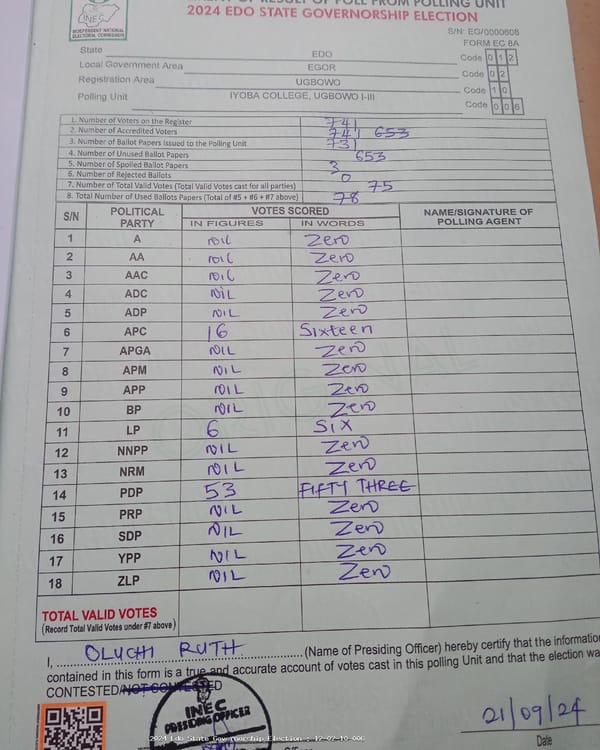 OF RESULT OF POLL FROM POLLING UNIT
2024 EDO STATE GOVERNORSHIP ELECTION
INEC
INDEPENDENT NATIONAL
ELECTORAL COMMISSION
S/N: EG/0000608
FORM EC 8A
State EDO Code 0 1 2
Local Government Area EGOR Code 0 2
Registration Area UGBOWO Code 1 0
Polling Unit IYOBA COLLEGE, UGBOWO I-III Code 0 0 6
1. Number of Voters on the Register 741
2. Number of Accredited Voters 741 653
3. Number of Ballot Papers Issued to the Polling Unit 731
4. Number of Unused Ballot Papers 653
5. Number of Spoiled Ballot Papers 3
6. Number of Rejected Ballots 0
7. Number of Total Valid Votes (Total Valid Votes cast for all parties) 75
8. Total Number of Used Ballots Papers (Total of #5 + #6 + #7 above) 78
S/N POLITICAL PARTY VOTES SCORED NAME/SIGNATURE OF POLLING AGENT
IN FIGURES IN WORDS
1 A NIL Zero
2 AA NIL Zero
3 AAC NIL Zero
4 ADC NIL Zero
5 ADP NIL Zero
6 APC 16 Sixteen
7 APGA NIL Zero
8 APM NIL Zero
9 APP NIL Zero
10 BP NIL Zero
11 LP 6 SIX
12 NNPP NIL Zero
13 NRM NIL Zero
14 PDP 53 FIFTY THREE
15 PRP NIL Zero
16 SDP NIL Zero
17 YPP NIL Zero
18 ZLP NIL Zero
TOTAL VALID VOTES
(Record Total Valid Votes under #7 above)
I, OLUCHI RUTH (Name of Presiding Officer) hereby certify that the information
contained in this form is a true and accurate account of votes cast in this polling Unit and that the election wa
CONTESTED/NOT CONTESTED
INEC
PRESIDING OFFICER
21/09/24
Date
2024 Edo State Governorship Election : 12-02-10-006